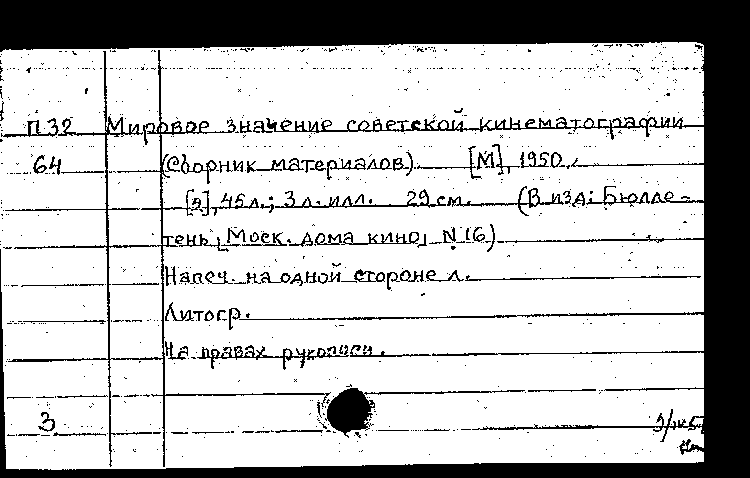 П32 Мировое значение советской кинематографии
64 (Сборник материалов). [М], 1950.
[2], 45 л.; 3 л. илл. 29 см. (В изд: Бюлле-
тень Моск. дома кино, N 16)
Напеч. на одной стороне л.
Литогр.
На правах рукописи.
3